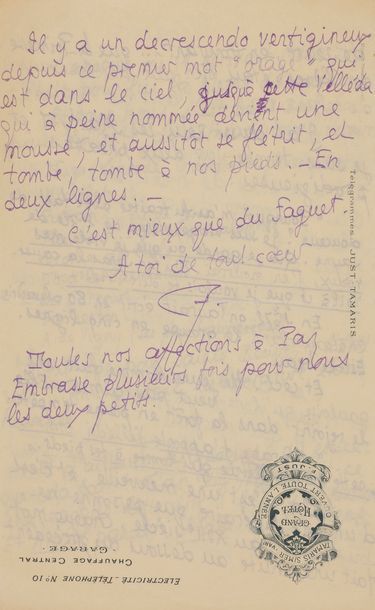 Il y a un decrescendo vertigineux
depuis ce premier mot "orage" qui
est dans le ciel, jusqu'à cette Velléda
qui à peine nommée devient une
mousse, et aussitôt se flétrit, et
tombe, tombe à nos pieds. — En
deux lignes. —
C'est mieux que du Faguet,
A toi de tout cœur
Toutes nos affections à
Embrasse plusieurs fois pour nous
les deux petits.
Télégrammes JUST TAMARIS
OUVERT TOUTE L'ANNÉE
F. JUST
GRAND HÔTEL
TAMARIS S/MER VAR
ELECTRICITÉ TÉLÉPHONE Nº 10
CHAUFFAGE CENTRAL
- GARAGE -